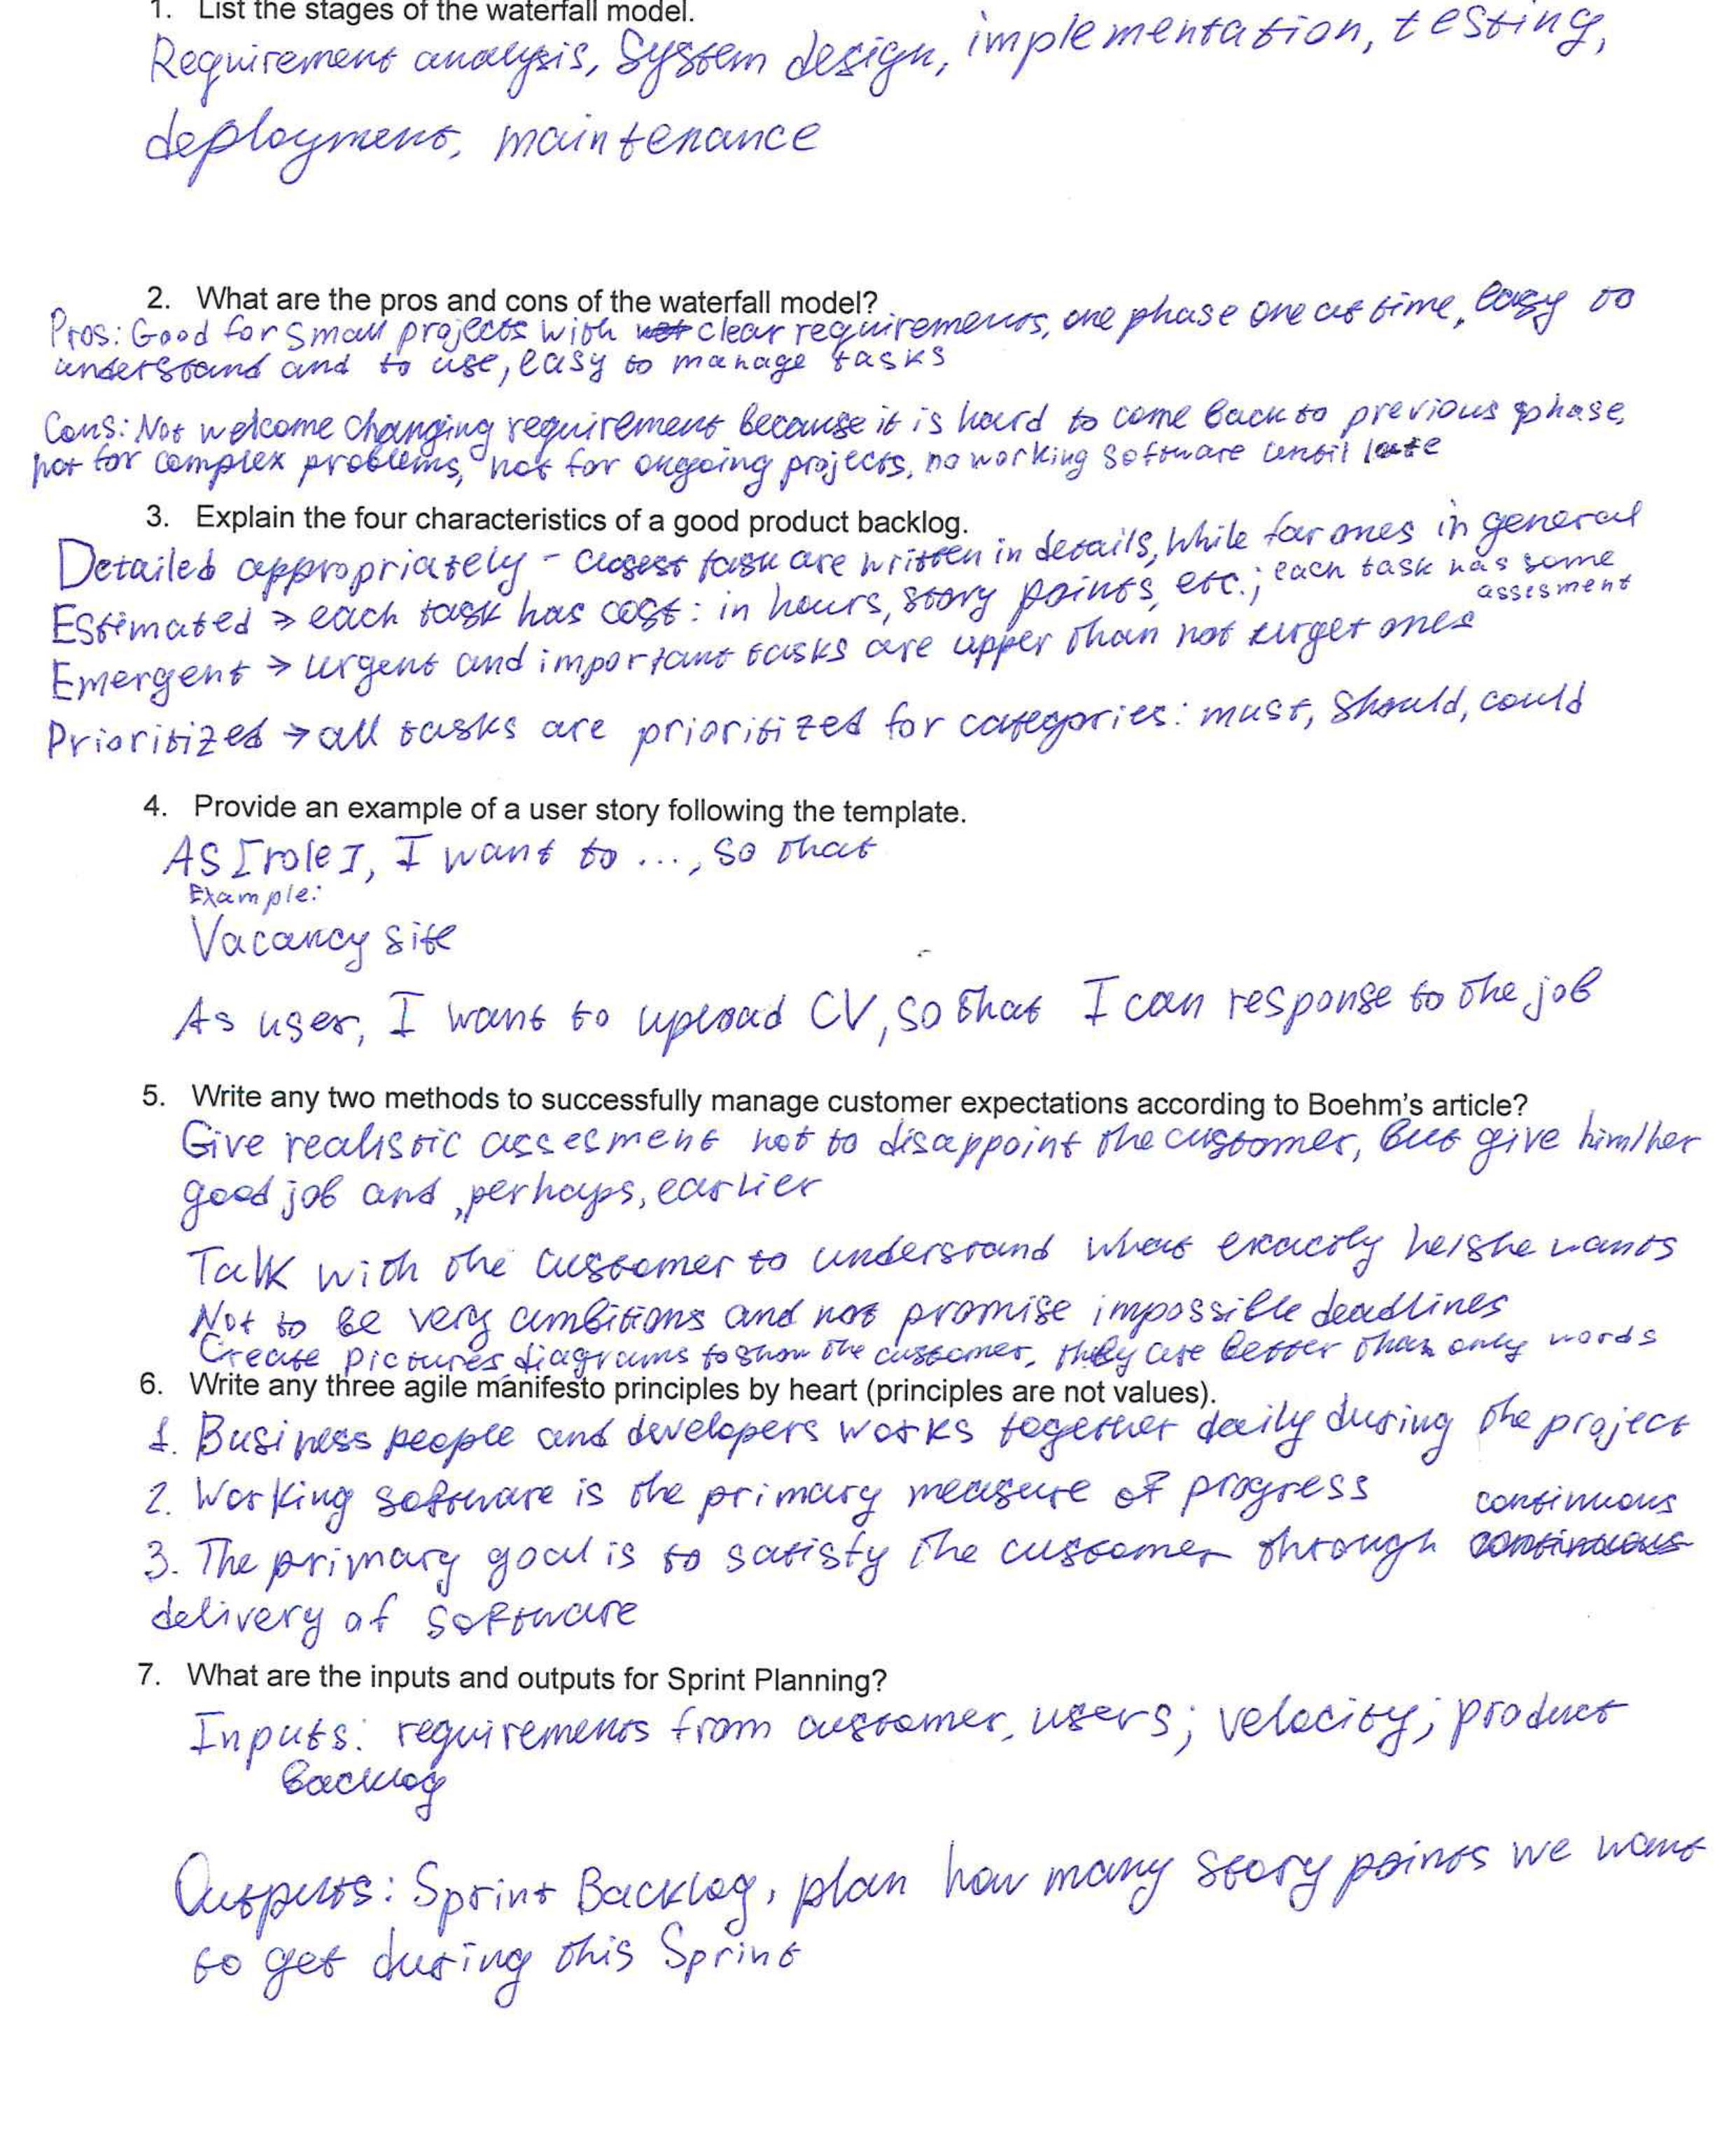 1. List the stages of the waterfall model.
Requirement analysis, System design, implementation, testing,
deployment, maintenance
2. What are the pros and cons of the waterfall model?
Pros: Good for small projects with clear requirements, one phase one at time, easy to
understand and to use, easy to manage tasks
Cons: Not welcome changing requirement because it is hard to come back to previous phase,
not for complex problems, not for ongoing projects, no working software until late
3. Explain the four characteristics of a good product backlog.
Detailed appropriately - closest task are written in details, while far ones in general
Estimated → each task has cost: in hours, story points, etc.; each task has some
assesment
Emergent → urgent and important tasks are upper than not urget ones
Prioritized → all tasks are prioritized for categories: must, should, could
4. Provide an example of a user story following the template.
As [role], I want to ..., so that
Example:
Vacancy site
As user, I want to upload CV, so that I can response to the job
5. Write any two methods to successfully manage customer expectations according to Boehm's article?
Give realistic assesment not to disappoint the customer, but give him/her
good job and, perhaps, earlier
Talk with the customer to understand what exactly he/she wants
Not to be very ambitions and not promise impossible deadlines
Create pictures, diagrams to show the customer, they are better than only words
6. Write any three agile manifesto principles by heart (principles are not values).
1. Business people and developers works together daily during the project
2. Working software is the primary measure of progress
continuous
3. The primary goal is to satisfy the customer through continuous
delivery of software
7. What are the inputs and outputs for Sprint Planning?
Inputs: requirements from customer, users; velocity; product
backlog
Outputs: Sprint Backlog, plan how many story points we want
to get during this Sprint